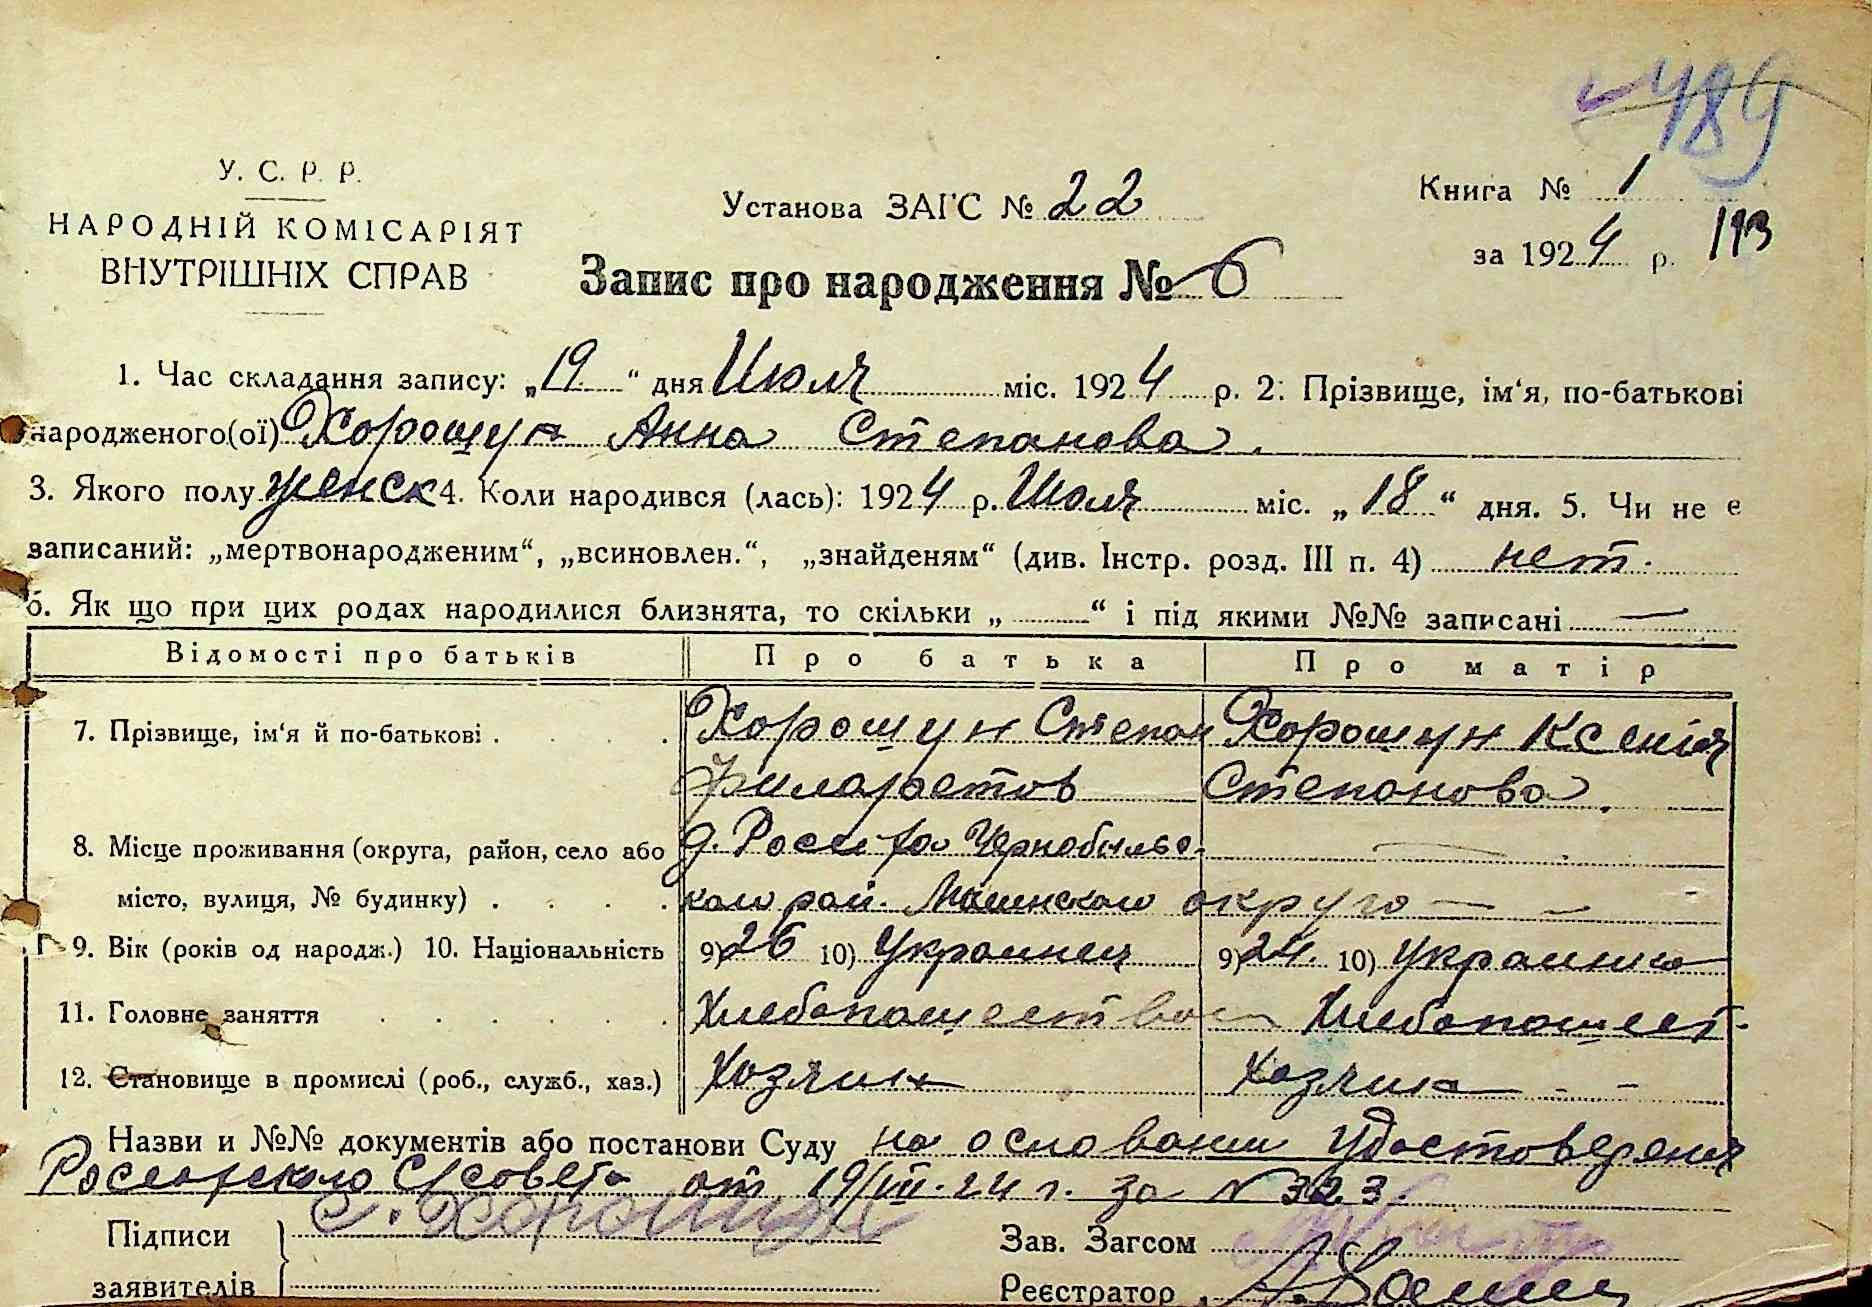 489
У. С. Р. Р.
НАРОДНІЙ КОМІСАРІЯТ
ВНУТРІШНІХ СПРАВ
Установа ЗАГС № 22
Книга № 1
за 1924 р. 193
Запис про народження № 6
1. Час складання запису: „19“ дня Июля міс. 1924 р. 2. Прізвище, ім‘я, по-батькові
народженого(ої) Хорошун Анна Степанова.
3. Якого полу женск 4. Коли народився (лась): 1924 р. Июля міс. „18“ дня. 5. Чи не є
записаний: „мертвонародженим“, „всиновлен.“, „знайденям“ (див. Інстр. розд. III п. 4) нет.
6. Як що при цих родах народилися близнята, то скільки „ “ і під якими №№ записані —
Відомості про батьків Про батька Про матір
7. Прізвище, ім‘я й по-батькові . Хорошун Степан Хорошун Ксенія
Филаретов Степанова.
8. Місце проживання (округа, район, село або д. Чернобыльс-
місто, вулиця, № будинку) . кого рай. округа — –
9. Вік (років од народж.) 10. Національність 9) 26 10) Украинец 9) 24. 10) Украинка
11. Головне заняття Хлебопашество Хлебопашест.
12. Становище в промислі (роб., служб., хаз.) Хозяин Хозяика - -
Назви и №№ документів або постанови Суду на основании Удостоверения
С/совета от 19/VII-24 г. за № 323.
Підписи С. Хорошун Зав. Загсом
заявителів Реєстратор